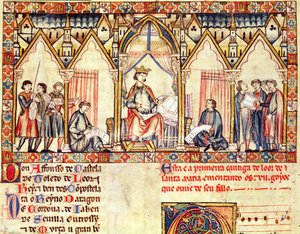 Don Affonso de Castela
de Toledo de Leon
Rey e ben des Conpostela
ta o Reyno daragon
De Cordova de Iahen
de Sevilla outrossy
Esta e a primeira cantiga de loor de
santa maria ementando os .vii. goyos
que ouve de seu fillo